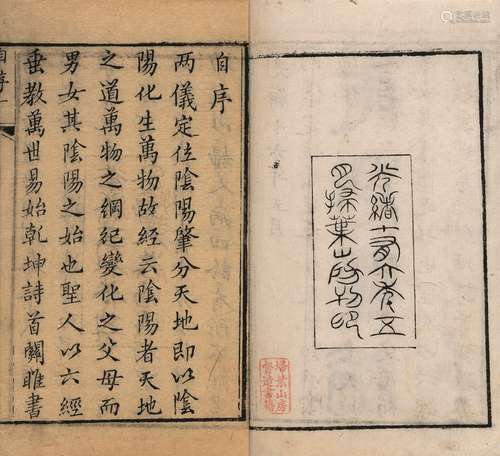 光緒十有六年五
月掃葉山房印
掃葉山房
督造書籍
自序
兩儀定位陰陽肇分天地即以陰
陽化生萬物故經云陰陽者天地
之道萬物之綱紀變化之父母而
男女其陰陽之始也聖人以六經
垂教萬世易始乾坤詩首關雎書
自序